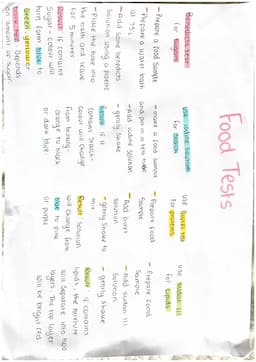 Food Tests
Benedicts test
for sugars
- Prepare a food sample
- Prepare a water bath
at 75°c.
- Add some benedicts
solution using a pipette
- Place the tube into
the bath and leave
for 5 minutes
Result if contains
Sugar - colour will
turn from blue to
Green, yellow,
brick red. Depends
on amount of Sugar.
use iodine solution
for starch
- make a food sample
and put in a test tube
- Add iodine solution
- gently shake
Result if it
contains starch -
colour will change
from brown-
orange to black
or dark blue.
use Biuret test
for proteins
- Prepare food
sample
- Add biuret
solution
- gently shake to
mix
Result solution
will change from
blue to pink
or purple
use Sudan III
for lipids
- Prepare food
sample
- add sudan III
solution
- gently shake
Result if contains
lipids, the mixture
will separate into two
layers. The top layer
will be bright red.